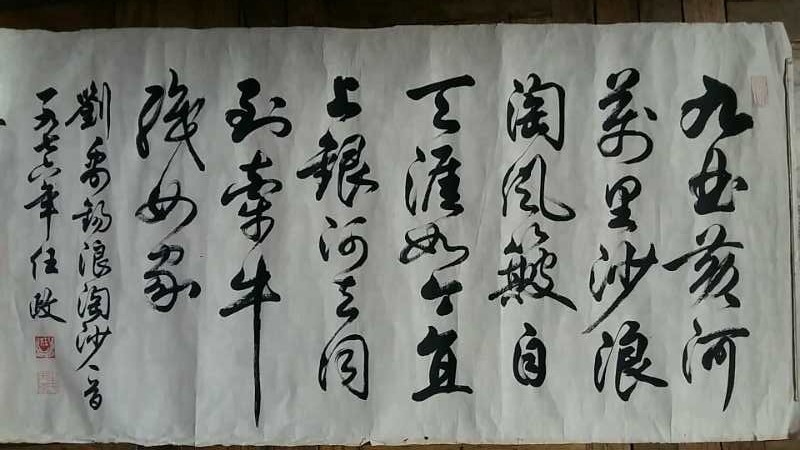 九曲黄河
萬里沙浪
淘風簸自
天涯如今直
上銀河去同
到牽牛
織女家
劉禹錫浪淘沙一首
一九七六年任政